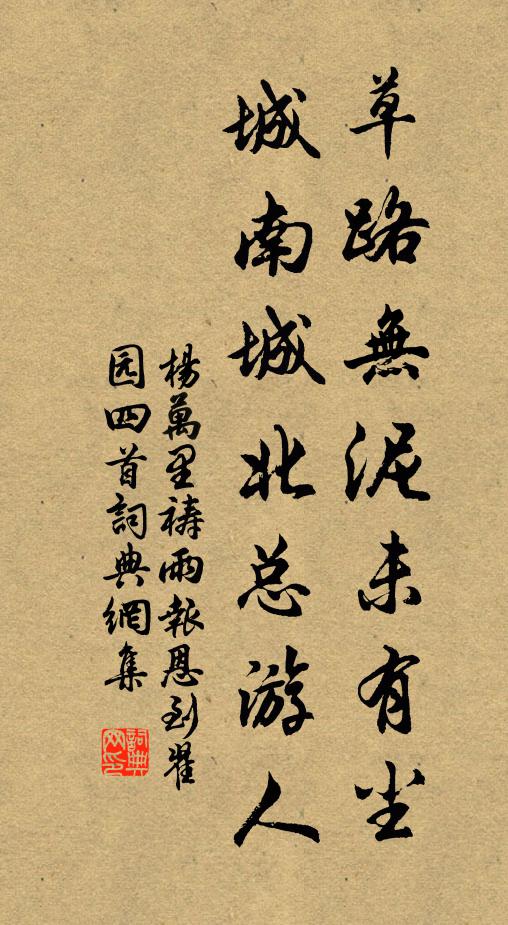 草路無泥未有尘
城南城北总游人
楊萬里禱雨報恩到翟
园四首詞典網集
詞典网